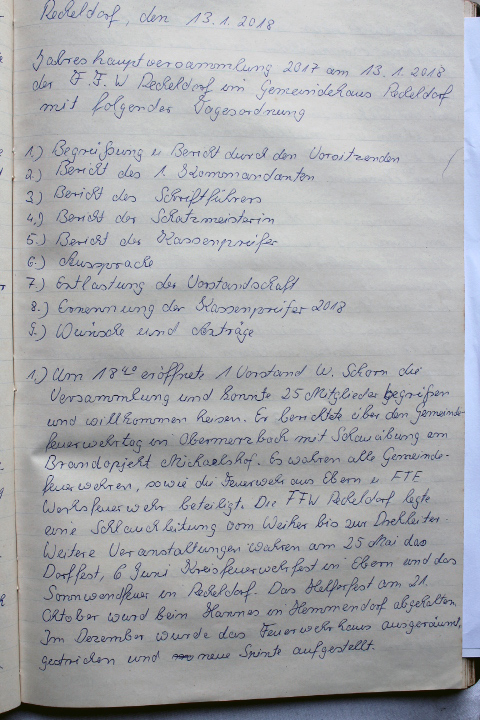 Recheldorf, den 13.1.2018
Jahreshauptversammlung 2017 am 13.1.2018
der F.F.W Recheldorf im Gemeindehaus Recheldorf
mit folgender Tagesordnung
1.) Begreißung u Bericht durch den Vorsitzenden
2.) Bericht des 1. Kommandanten
3.) Bericht des Schriftführers
4.) Bericht der Schatzmeisterin
5.) Bericht der Kassenpreifer
6.) Aussprache
7.) Entlastung der Vorstandschaft
8.) Ernennung der Kassenpreifer 2018
9.) Wünsche und Anträge
1.) Um 18⁴⁰ eröffnete 1 Vorstand W. Schorn die
Versammlung und konnte 25 Mitglieder begreißen
und willkommen heisen. Er berichtete über den Gemeinde-
feuerwehrtag in Obermerzbach mit Schauübung am
Brandopjekt Michaelshof. Es wahren alle Gemeinde-
feuerwehren, sowie die Feuerwehr aus Ebern u FTE
Werksfeuerwehr beteiligt. Die FFW Recheldorf legte
eine Schlauchleitung vom Weiher bis zur Drehleiter.
Weitere Veranstaltungen wahren am 25 Mai das
Dorffest, 6 Juni Kreisfeuerwehrfest in Ebern und das
Sonnwendfeuer in Recheldorf. Das Helferfest am 21.
Oktober ward beim Hannes in Hemmendorf abgehalten
Im Dezember wurde das Feuerwehrhaus ausgeräumt,
gestrichen und neue Spinte aufgestellt.